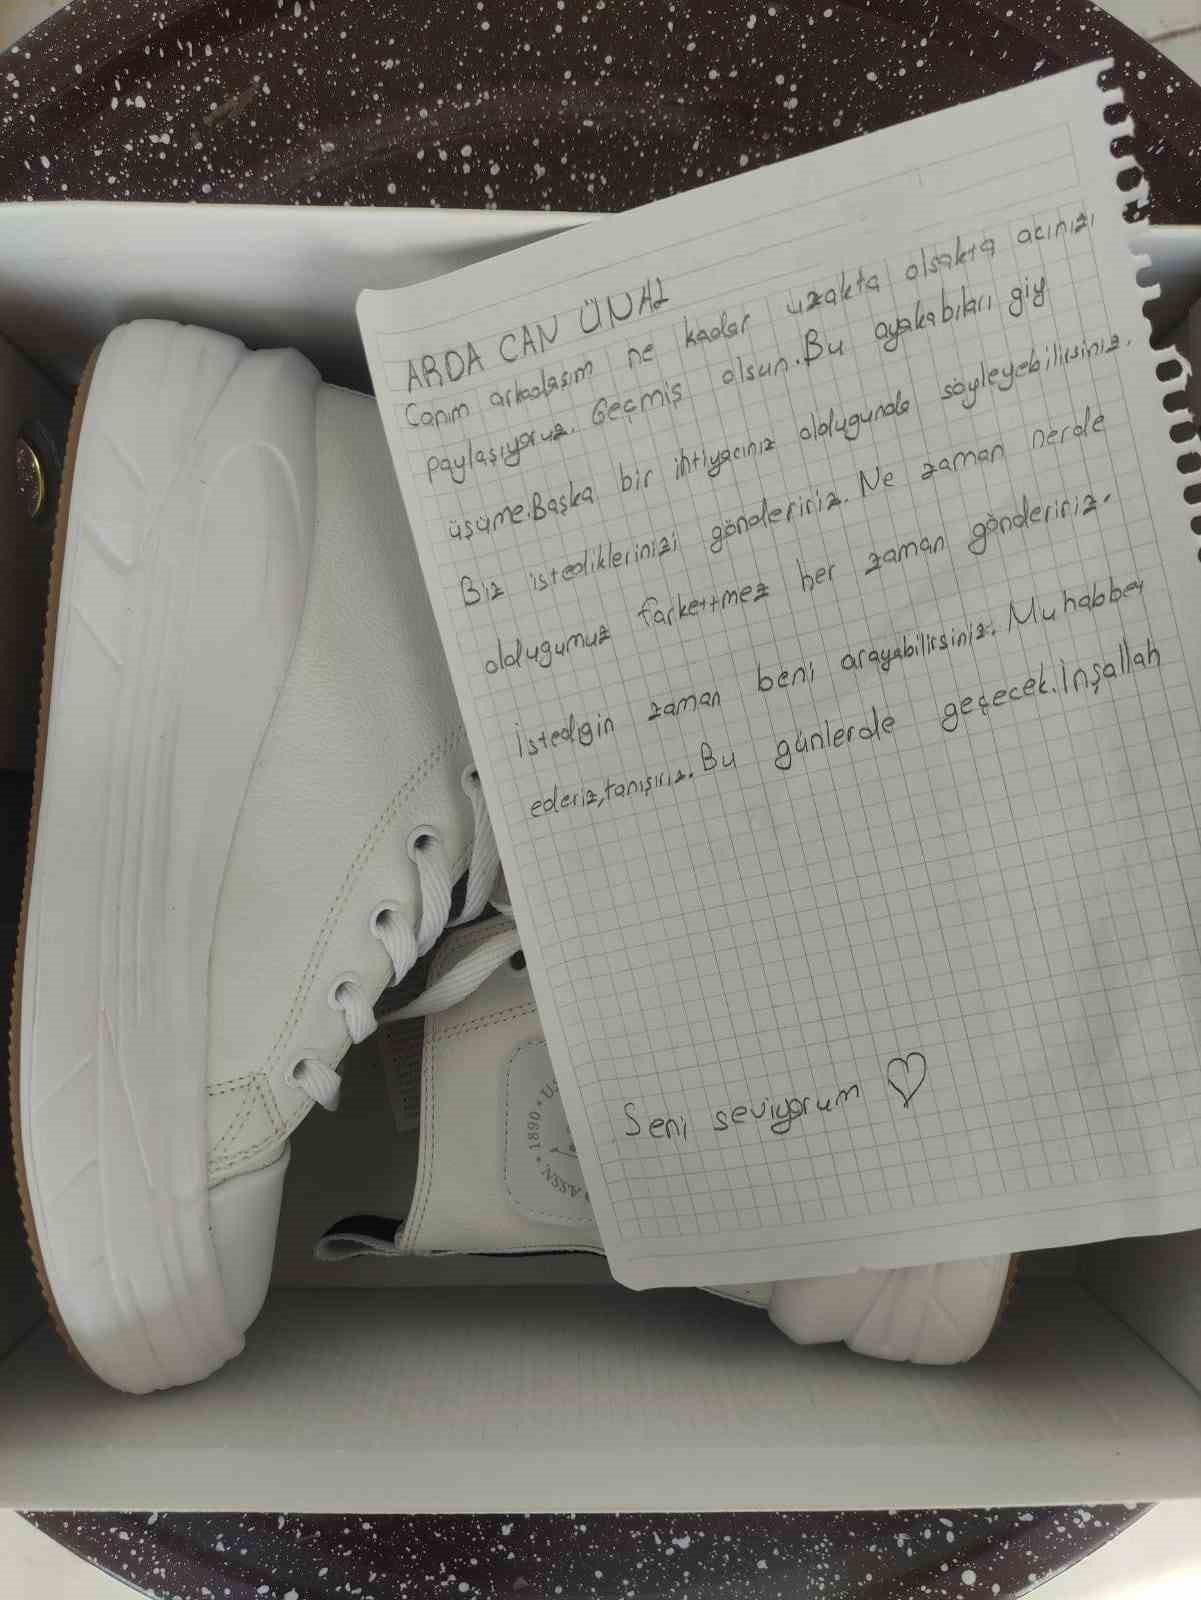 ARDA CAN ÜNAL
Canım arkadaşım ne kadar uzakta olsakta acınızı
paylaşıyoruz. Geçmiş olsun. Bu ayakabıları giy
üşüme. Başka bir ihtiyacınız oldugunda söyleyebilirsiniz.
Biz istediklerinizi göndeririz. Ne zaman nerde
oldugumuz farkettmez her zaman göndeririz.
İstedigin zaman beni arayabilirsiniz. Muhabbet
ederiz, tanışırız. Bu günlerde geçecek. İnşallah
Seni seviyorum ♡
1890 • U.S
ASSN